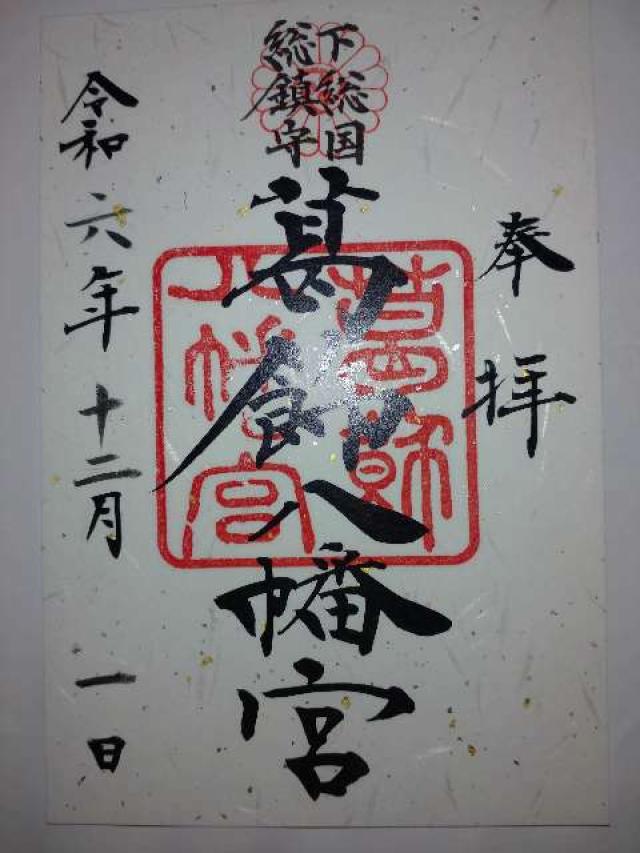 奉拝
下総国
総鎮守
葛飾八幡宮
葛飾
八幡宮
令和六年十二月一日